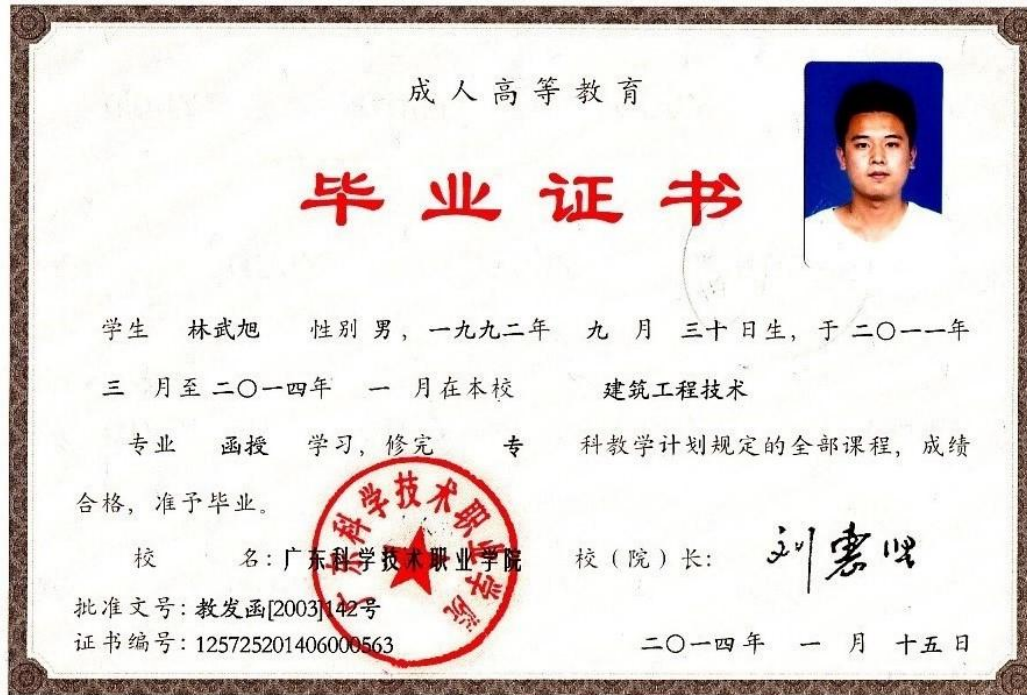 成人高等教育
毕业证书
学生 林武旭 性别 男，一九九二年 九 月 三十 日生，于 二〇一一年
三 月至 二〇一四年 一 月在本校 建筑工程技术
专业 函授 学习，修完 专 科教学计划规定的全部课程，成绩
合格，准予毕业。
校 名：广东科学技术职业学院 校（院）长：刘惠坚
广东科学技术职业学院
批准文号：教发函[2003]142号
证书编号：125725201406000563 二〇一四年 一 月 十五 日